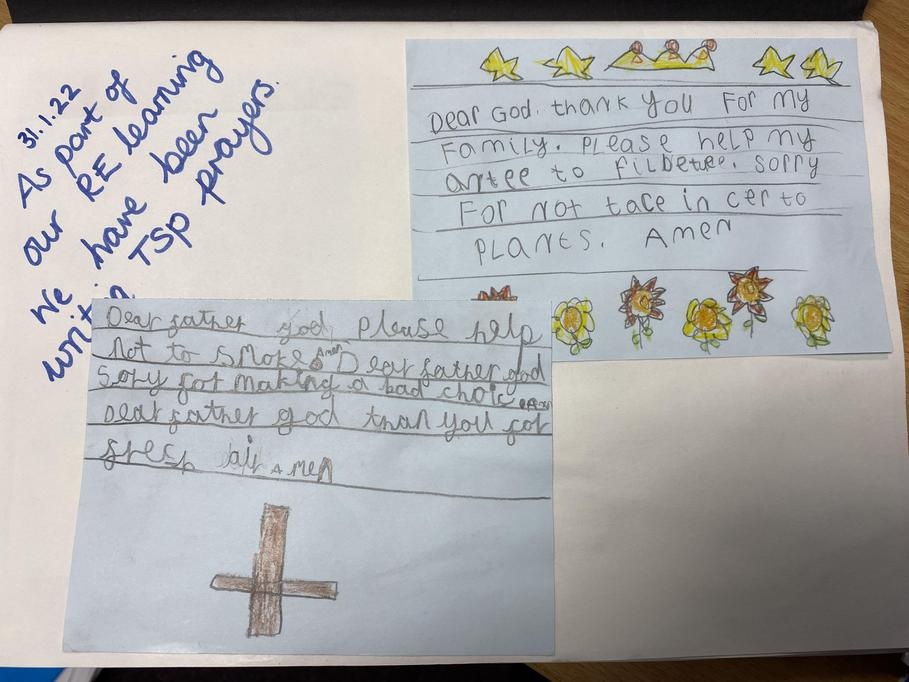 31.1.22
As part of
our RE learning
we have been
writing TSP prayers.
Dear God. thank you For My
Family. Please help my
antee to filbetee. sorry
For Not tace in cer to
PLANTS. Amen
Dear father god please help
Not to smoke Amen Dear father god
Sory for making a bad choic Amen
Dear father god than you for
fresh air Amen